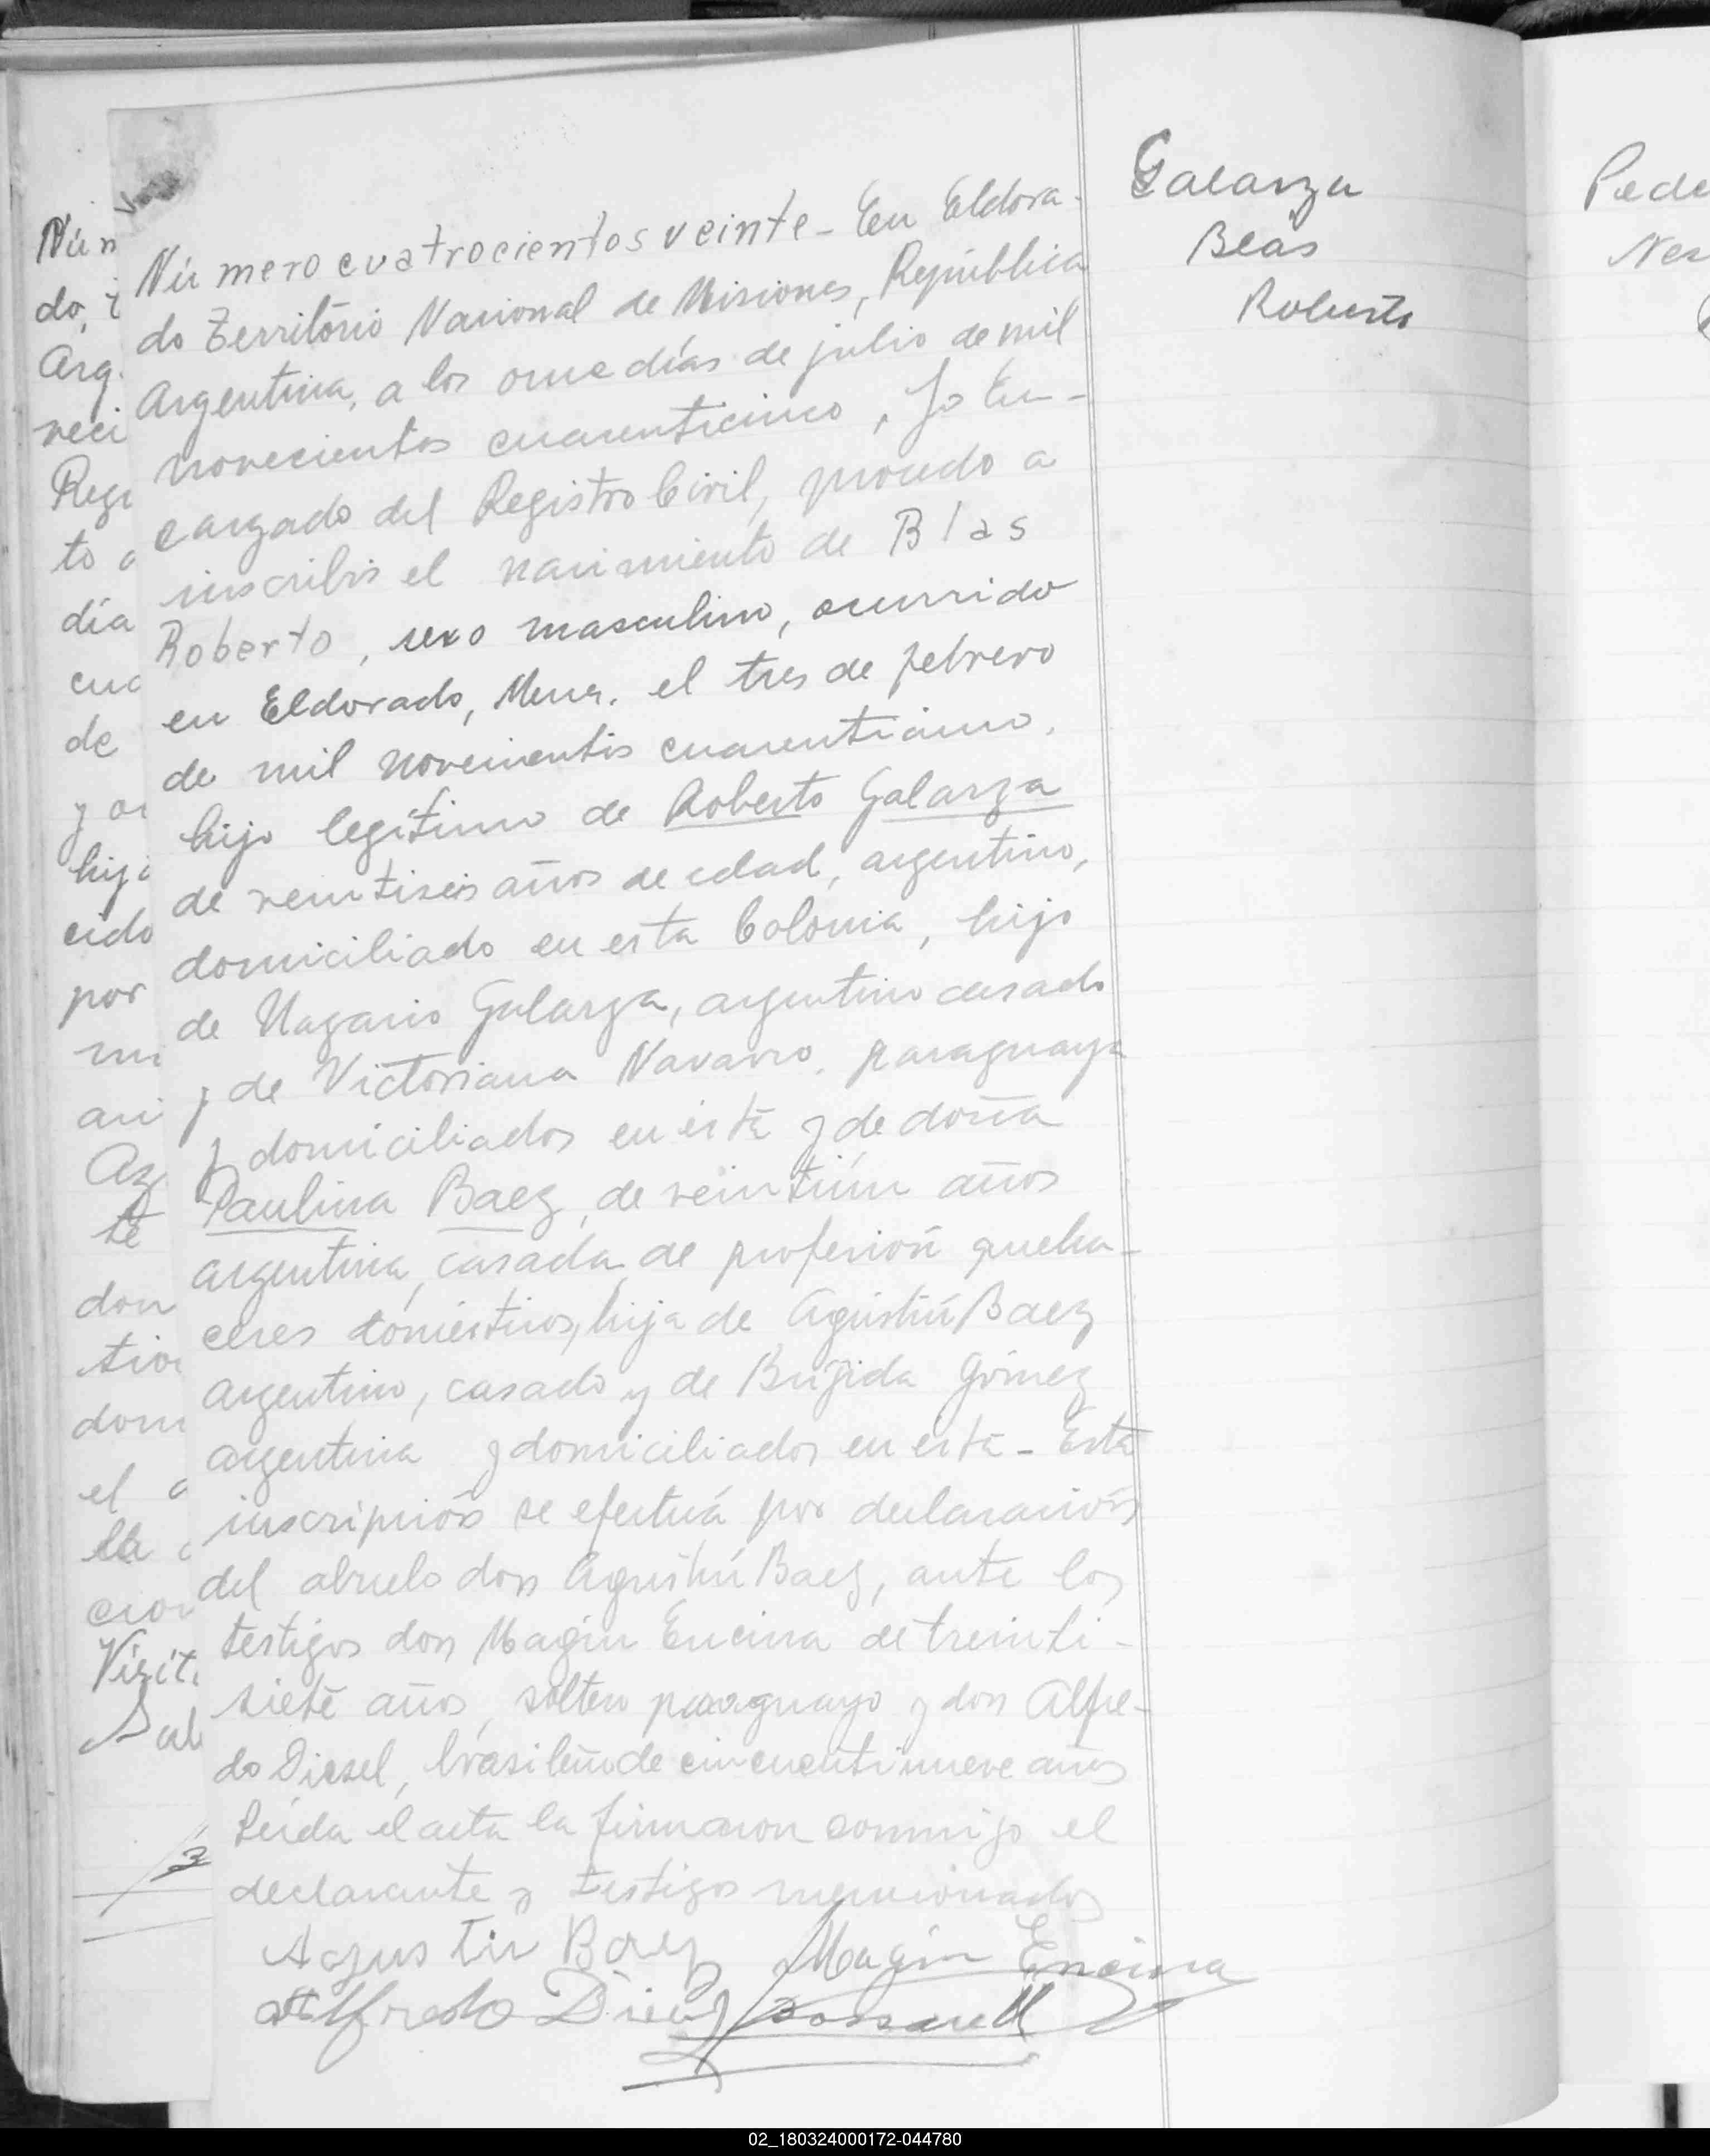 Galarza
Blas
Roberto
Número cuatrocientos veinte - En Eldora-
do Territorio Nacional de Misiones, República
Argentina, a los once días de julio de mil
novecientos cuarenticinco, Jo En-
cargado del Registro Civil, procedo a
inscribir el nacimiento de Blas
Roberto, sexo masculino, ocurrido
en Eldorado, el tres de febrero
de mil novecientos cuarenticinco,
hijo legítimo de Roberto Galarza
de veintiseis años de edad, argentino,
domiciliado en esta Colonia, hijo
de Galarza, argentino casado
y de Victoriana Navarro, paraguaya
y domiciliados en esta y de doña
Paulina Baez, de veintiún años
argentina, casada, de profesión queha-
ceres domésticos, hija de Agustín Baez
argentino, casado y de Brígida Gómez
argentina y domiciliados en esta - Esta
inscripción se efectuá por declaración
del abuelo don Agustín Baez, ante los
testigos don Magín Encina de treinti-
siete años, soltero paraguayo y don Alfre-
do Diesel, brasileño de cincuentinueve años
Leída el acta la firmaron conmigo el
declarante y testigos mencionados
Agustín Baez Magín Encina
Alfredo
Pede
Nes
Nú
do,
Arg.
neci
Regi
to
día
cua
de
hijo
cido
por
mi
don
dom
el
la
02_180324000172-044780